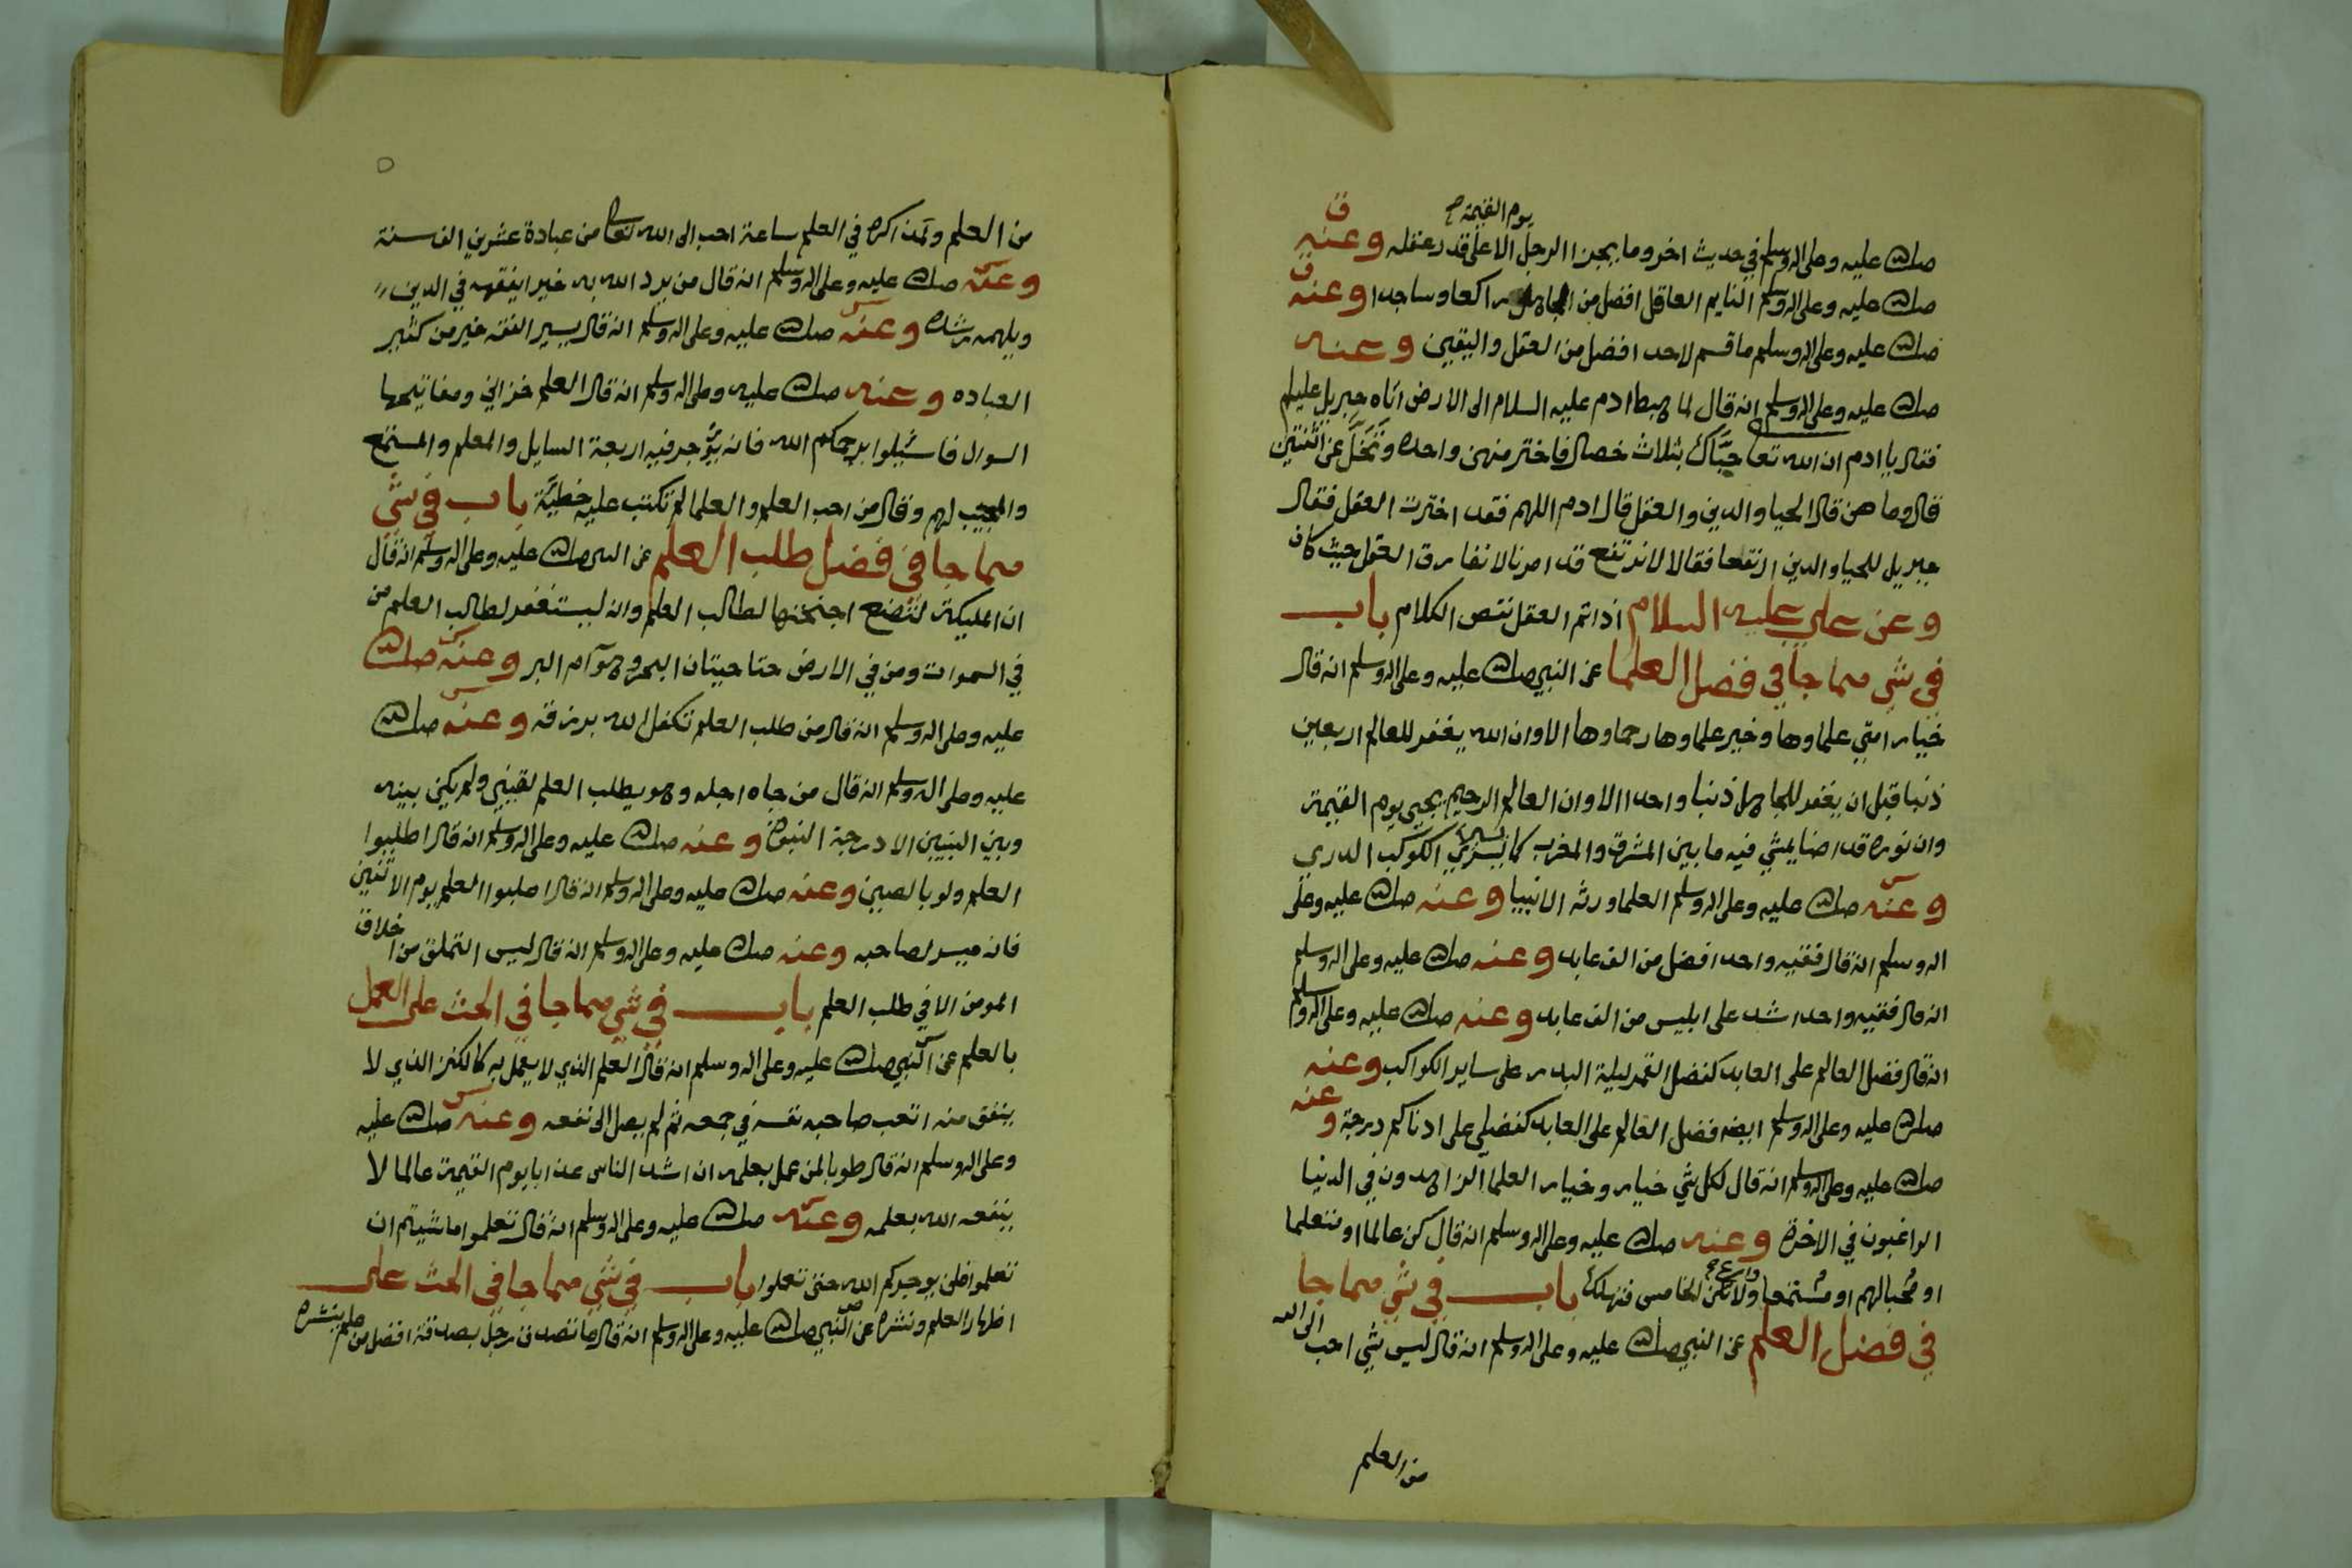 يوم القيمة
صلى الله عليه وعلى اله وسلم في حديث اخر وما يجزا الرجل الا على قدر عقله وعنه
صلى الله عليه وعلى اله وسلم النايم العاقل افضل من الجاهل راكعا وساجدا وعنه
صلى الله عليه وعلى اله وسلم ما قسم لاحد افضل من العقل واليقين وعنه
صلى الله عليه وعلى اله وسلم انه قال لما هبط ادم عليه السلام الى الارض اتاه جبريل عليلم
فقال يا ادم ان الله تعا حباك بثلاث خصال فاختر منهن واحده وتخل عن اثنتين
قال وما هن قال الحيا والدين والعقل قال ادم اللهم فقد اخترت العقل فقال
جبريل للحيا والدين ارتفعا فقالا لا نرتفع قد امرنا لا نفارق العقل حيث كان
وعن علي عليه السلام اذا تم العقل نقص الكلام باب
في شي مما جا في فضل العلما عن النبي صلى الله عليه وعلى اله وسلم انه قال
خيار امتي علماوها وخير علماوها رحماوها الا وان الله يغفر للعالم اربعين
ذنبا قبل ان يغفر للجاهل ذنبا واحدا الا وان العالم الرحيم يجي يوم القيمة
وان نوره قد اضا يمشي فيه ما بين المشرق والمغرب كما يسري الكوكب الدري
وعنه صلى الله عليه وعلى اله وسلم العلما ورثه الانبيا وعنه صلى الله عليه وعلى
اله وسلم انه قال فقيه واحد افضل من الف عابد وعنه صلى الله عليه وعلى اله وسلم
انه قال فقيه واحد اشد على ابليس من الف عابد وعنه صلى الله عليه وعلى اله وسلم
انه قال فضل العالم على العابد كفضل القمر ليلة البدر على ساير الكواكب وعنه
صلى الله عليه وعلى اله وسلم ايضه فضل العالم على العابد كفضلي على ادناكم درجة وعنه
صلى الله عليه وعلى اله وسلم انه قال لكل شي خيار وخيار العلما الزاهدون في الدنيا
الراغبون في الاخرة وعنه صلى الله عليه وعلى اله وسلم انه قال كن عالما او متعلما
او محبا لهم او مستمعا ولا تكن الخامس فتهلك باب في شي مما جا
في فضل العلم عن النبي صلى الله عليه وعلى اله وسلم انه قال ليس شي احب الى الله
من العلم
٥
من العلم ولمذاكره في العلم ساعة احب الى الله تعا من عبادة عشرين الف سنة
وعنه صلى الله عليه وعلى اله وسلم انه قال من يرد الله به خيرا يفقهه في الدين
ويلهمه رشده وعنه صلى الله عليه وعلى اله وسلم انه قال يسير الفقه خير من كثير
العباده وعنه صلى الله عليه وعلى اله وسلم انه قال العلم خزاين ومفاتيحها
السوال فاسئيلوا يرحمكم الله فانه يؤجر فيه اربعة السايل والمعلم والمستمع
والمجيب لهم وقال من احب العلم والعلما لم تكتب عليه خطيئة باب في شي
مما جا في فضل طلب العلم عن النبي صلى الله عليه وعلى اله وسلم انه قال
ان المليكة لتضع اجنحتها لطالب العلم وانه ليستغفر لطالب العلم من
في السموات ومن في الارض حتا حيتان البحر وهوآم البر وعنه صلى الله
عليه وعلى اله وسلم انه قال من طلب العلم تكفل الله برزقه وعنه صلى الله
عليه وعلى اله وسلم انه قال من جاه اجله وهو يطلب العلم لقيني ولم يكن بينه
وبين النبيين الا درجة النبوة وعنه صلى الله عليه وعلى اله وسلم انه قال اطلبوا
العلم ولو بالصين وعنه صلى الله عليه وعلى اله وسلم انه قال اطلبوا العلم يوم الاثنين
فانه ميسر لصاحبه وعنه صلى الله عليه وعلى اله وسلم انه قال ليس التملق من اخلاق
المومن الا في طلب العلم باب في شي مما جا في الحث على العمل
بالعلم عن النبي صلى الله عليه وعلى اله وسلم انه قال العلم الذي لا يعمل به كالكنز الذي لا
ينفق منه اتعب صاحبه نفسه في جمعه ثم لم يصل الى نفعه وعنه صلى الله عليه
وعلى اله وسلم انه قال طوبا لمن عمل بعلمه ان اشد الناس عذابا يوم القيمة عالما لا
ينفعه الله بعلمه وعنه صلى الله عليه وعلى اله وسلم انه قال تعلموا ما شيتم ان
تعلموا فلن يوجركم الله حتى تعملوا باب في شي مما جا في الحث على
اظهار العلم ونشره عن النبي صلى الله عليه وعلى اله وسلم انه قال ما تصدق رجل بصدقة افضل من علم ينشره